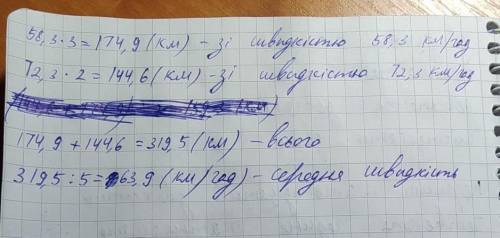 58,3·3=174,9(км) – зі швидкістю 58,3 км/год
72,3·2=144,6(км) – зі швидкістю 72,3 км/год
174,9+144,6=319,5(км) – всього
319,5:5=63,9(км/год) – середня швидкість